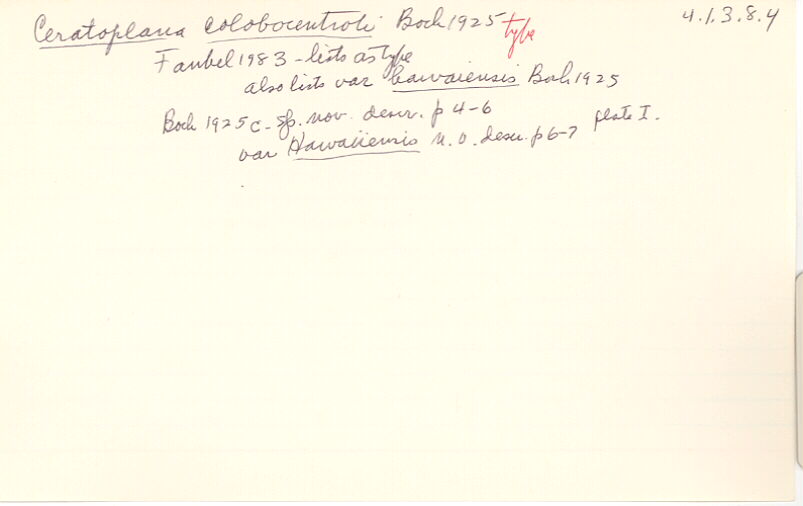 Ceratoplana colobocentroti Bock 1925 type 4.1.3.8.4
Faubel 1983 - lists as type
also lists var hawaiensis Bock 1925
Bock 1925c - sp. nov. descr. p 4-6 plate I.
var Hawaiiensis n. v. descr. p 6-7